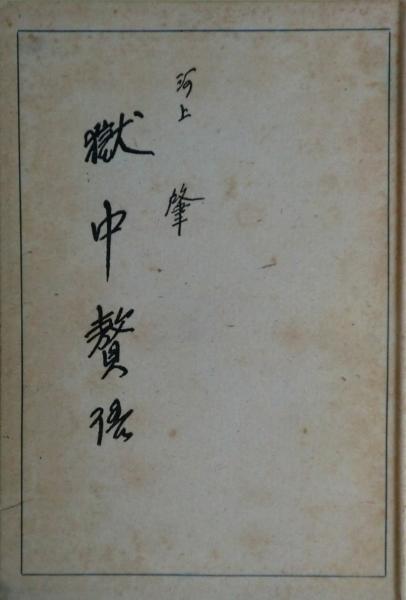 河上 肇
獄中贅語